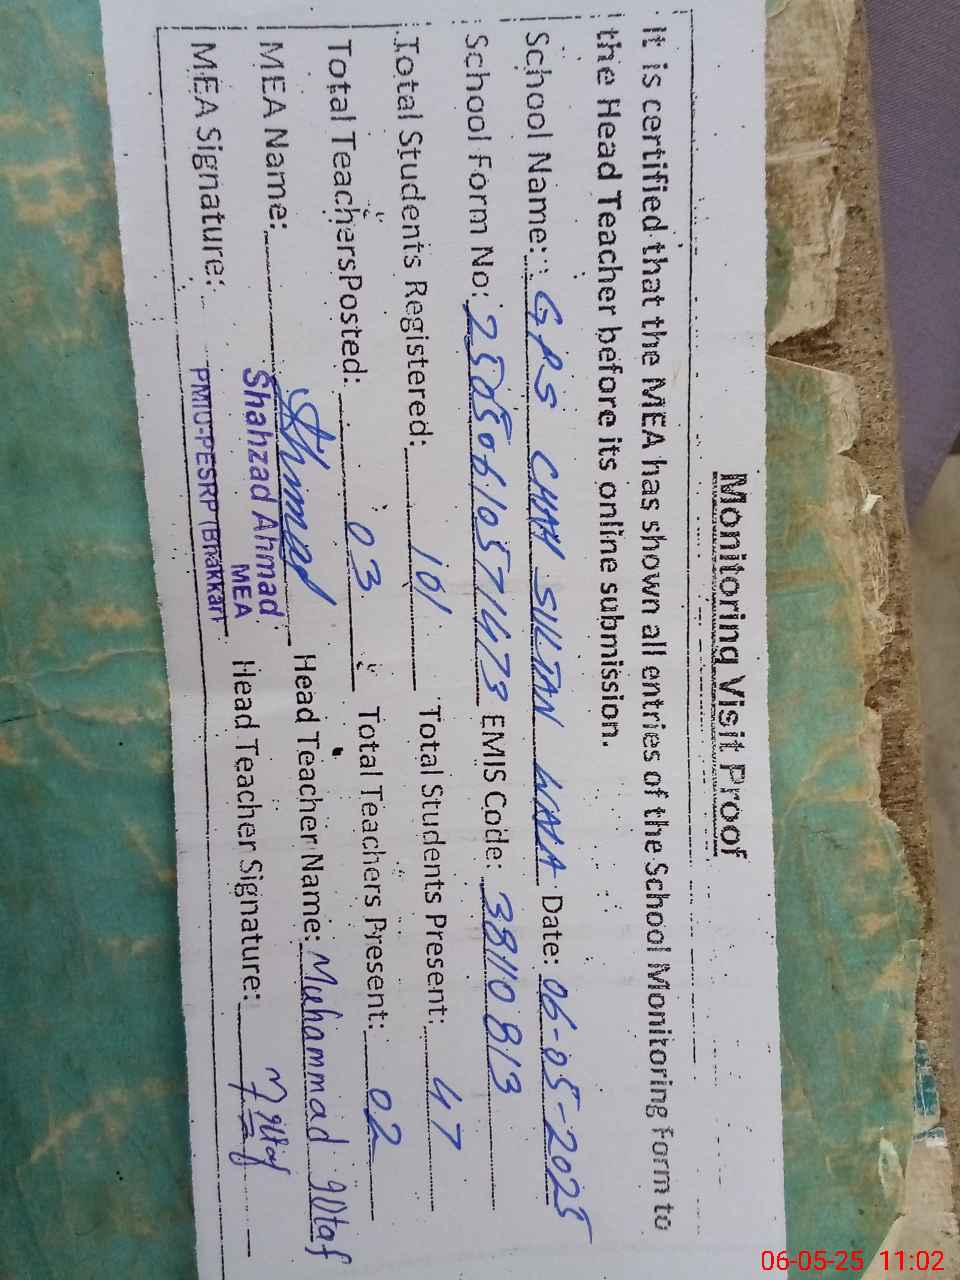 Monitoring Visit Proof
It is certified that the MEA has shown all entries of the School Monitoring Form to
the Head Teacher before its online submission.
School Name: GPS CHAH SULTAN WALA Date: 06-05-2025
School Form No: 25050610571473 EMIS Code: 38110813
Total Students Registered: 101 Total Students Present: 47
Total Teachers Posted: 03 Total Teachers Present: 02
MEA Name: Ahmad Head Teacher Name: Muhammad
Shahzad Ahmad
MEA
MEA Signature: PMIU-PESRP (Bhakkar) Head Teacher Signature:
06-05-25 11:02